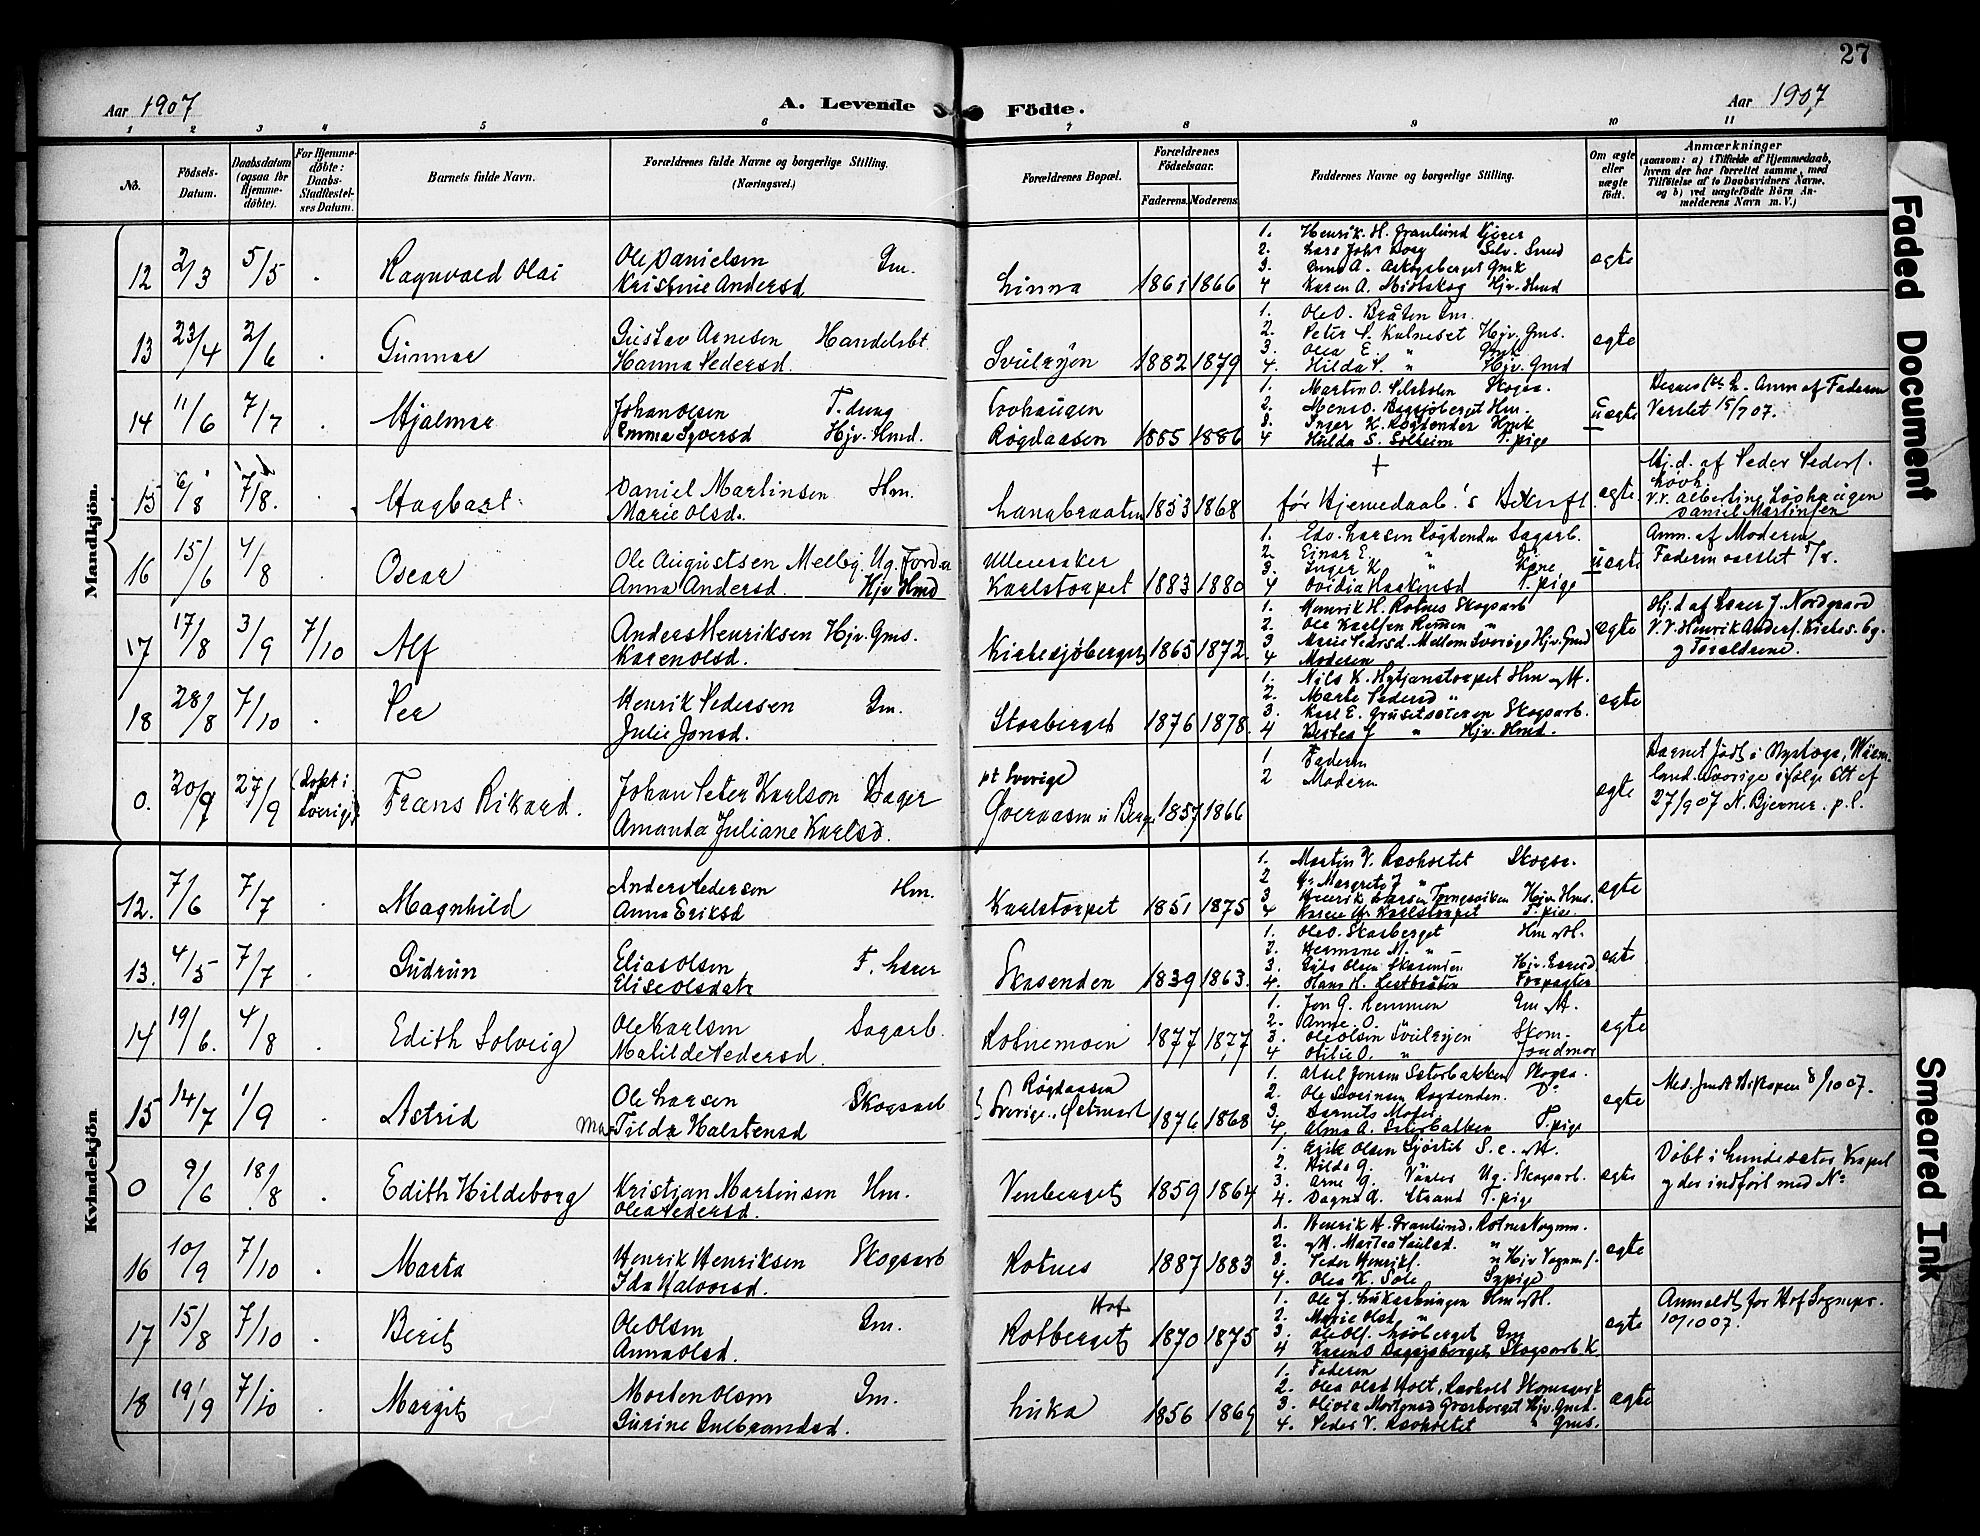 27
Aar 1907
A. Levende Födte.
Aar 1907
1 2 3 4 5 6 7 8 9 10 11
No.
Födsels-Datum.
Daabsdatum (ogsaa for Hjemme-döbte).
For Hjemme-döbte: Daabs-Stadfæstel-ses Datum.
Barnets fulde Navn.
Forældrenes fulde Navne og borgerlige Stilling. (Næringsvei.)
Forældrenes Bopæl.
Forældrenes Födselsaar.
Faderens. Moderens.
Faddernes Navne og borgerlige Stilling.
Om ægte eller uægte födt.
Anmærkninger
(saasom: a) i Tilfælde af Hjemmedaab, hvem der har forrettet samme, med Tilföielse af to Daabsvidners Navne, og b) ved uægtefödte Börn Anmelderens Navn m. V.)
Mandkjön.
12 2/3 5/5 . Ragnvald Olai
Ole Danielsen Gm.
Kristine Andersd
Linna 1861 1866
1. Henrik H. Granlund
2. Lars Johs
3. Anna A. Askogsberget Gmk
4 Karen A. Midtskog Hjv. Hmd
ægte
13 23/4 2/6 . Gunnar
Gustav Arnesen Handelsbt.
Hanna Pedersd.
Svulrya 1882 1879
1. Ole O. Bråten Gm.
2. Peter S. Kalneset Hjv. Gms.
3. Olea E. " Gmk
4. Hilda S. " Hjv. Gmd
ægte
14 11/6 7/7 . Hjalmar
Johan Olsen T. dreng
Emma Syversd Hjv. Hmd.
Lovhaugen
Røgdaasen 1885 1886
1. Martin O. Skogsa.
2. Mons O. Bagsjøberget Hm.
3. Inger K. Røgdenden Hmk
4 Hulda S. Solheim T. pige
uægte
Anm. af Faderen
Varslet 15/7 07.
15 6/8 7/8. . Hagbart
Daniel Martinsen Hm.
Marie Olsd.
Langbraaten 1853 1868
+
før Hjemedaab.'s
ægte
Hj. d. af Peder Peders.
Løvh.
V.V. Albertine Løvhaugen
Daniel Martinsen
16 15/6 4/8 . Oscar
Ole Augustsen Melby. Ug. Jorda
Anna Andersd. Hjv. Hmd
Ullensaker
Karlstorpet 1883 1880
1. Edv. Larsen Røgdenden Sagarb.
2. Einar E. "
3. Inger K. " Kone
4 Ovidia Haakensd T. pige
uægte
Anm. af Moderen
Faderen varslet 5/8.
17 17/8 3/9 7/10 Alf
Anders Henriksen Hjv. Gms.
Karen Olsd.
Kirkesjøberget 1865 1872.
1. Henrik H. Rotnes Skogsarb
2. Ole Karlsen Remmen "
3 Marie Pedersd. Mellem Sverige Hjv. Gmd
4 Moderen
ægte
Hj. d af Lærer J. Nordgaard
V.V. Henrik Anders. Kirkes. bg.
og Forældrene.
18 28/8 7/10 . Per
Henrik Pedersen Gm.
Julie Jonsd.
Skarberget 1876 1878.
1. Nils K. Hytjanstorpet Hm og H.
2. Marte Pedersd "
3. Karl E. Grusetsæteren Skogsarb.
4 " Hjv. Hmd.
ægte
0. 20/9 27/9 (Døbt i Sverige) Frans Rikard.
Johan Peter Karlson
Amanda Juliane Karlsd.
pt Sverige
Øveraasen i Berge 1857 1866
1 Faderen
2 Moderen
ægte
Barnet født i Nyskoga, Värmland. Sverige ifølge Att af
27/9 07 N. Bjerner. p.l.
Kvindekjön
12. 7/6 7/7 . Magnhild
Anders Pedersen Hm.
Anna Eriksd
Karlstorpet 1851 1875
1. Martin V. Raaholtet Skogsa.
2 H. Margrete J "
3 Henrik Larsen Hjv. Hms.
4 Karen A. Karlstorpet T. pige.
ægte
13. 4/5 7/7 . Gudrun
Elias Olsen F. Lærer
Elise Olsdatr
Skasenden 1839 1863.
1. Ole O. Skarberget Hm og H.
2. Hermine M. " –
3. Olsen Skasenden
4. Hans H. Lestbråten Forpagter
ægte
14 19/6. 4/8 . Edith Solveig
Ole Karlsen Sagarb.
Matilde Pedersd.
Rotnemoen 1877 1877
1. Jon G. Remmen Gm og H.
2. Anne O. "
3. Ole Olsen Svulryen Skom.
4 Otilie O. " Jordmor
ægte
15 14/7 1/9 . Astrid
Ole Larsen Skogsarb
Ma- Tilda Halstensd
Røgdaasen
Sverige. Østmark 1876 1868
1. Axel Jonsen Sæterbakken Skogsa.
2. Ole Severinsen Røgdenden. Do
3. Barnets Moder
4. Alma A. Sæterbakken T. pige
ægte
8/10 07.
0 9/6 18/8 . Edith Hildeborg
Kristian Martinsen Hm.
Olea Pedersd.
Venberget 1859 1864
1. Erik Olsen Sjøstil S. e. og H.
2. Hilda G.
3. Arne G. Ug. Skogsarb.
4. Dagne A. Strand T. pige
ægte
Døbt i Lundersæter Kapel
og der indført med No
16 10/9 7/10 . Marta
Henrik Henriksen Skogsarb
Ida Halvorsd.
Rotnes 1887 1883
1. Henrik H. Granlund. Rotnes Vognm.
2. og H. Martea Paulsd. "
3. Peder Henriks. " Hjv Vognm s.
4. Olea K. Sole Sypige
ægte
17 15/8 7/10 . Berit
Ole Olsen Gm.
Anna Olsd.
Hof
Rotberget 1870 1875
1. Ole J. Lukashaugen Hm og H.
2. Marie Olsd "
3. Ole Ols. Løvberget Gm
4 Karen O Bagsjøberget Skogsarb. K
ægte
Anmeldt for Hof Sognepr.
10/10 07.
18 19/9 7/10 . Margit
Morten Olsen Gm.
Gurine Gulbrandsd.
Luka 1856 1869
1. Faderen
2. Olea Olsd Holt, Raaholt
3. Olivia Mortensd Graaberget Hjv. Gmd.
4. Peder V. Raaholtet " Gms.
ægte
Faded Document
Smeared Ink